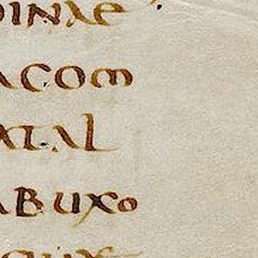 DINAE
ACOM
ATAL
ABUXO